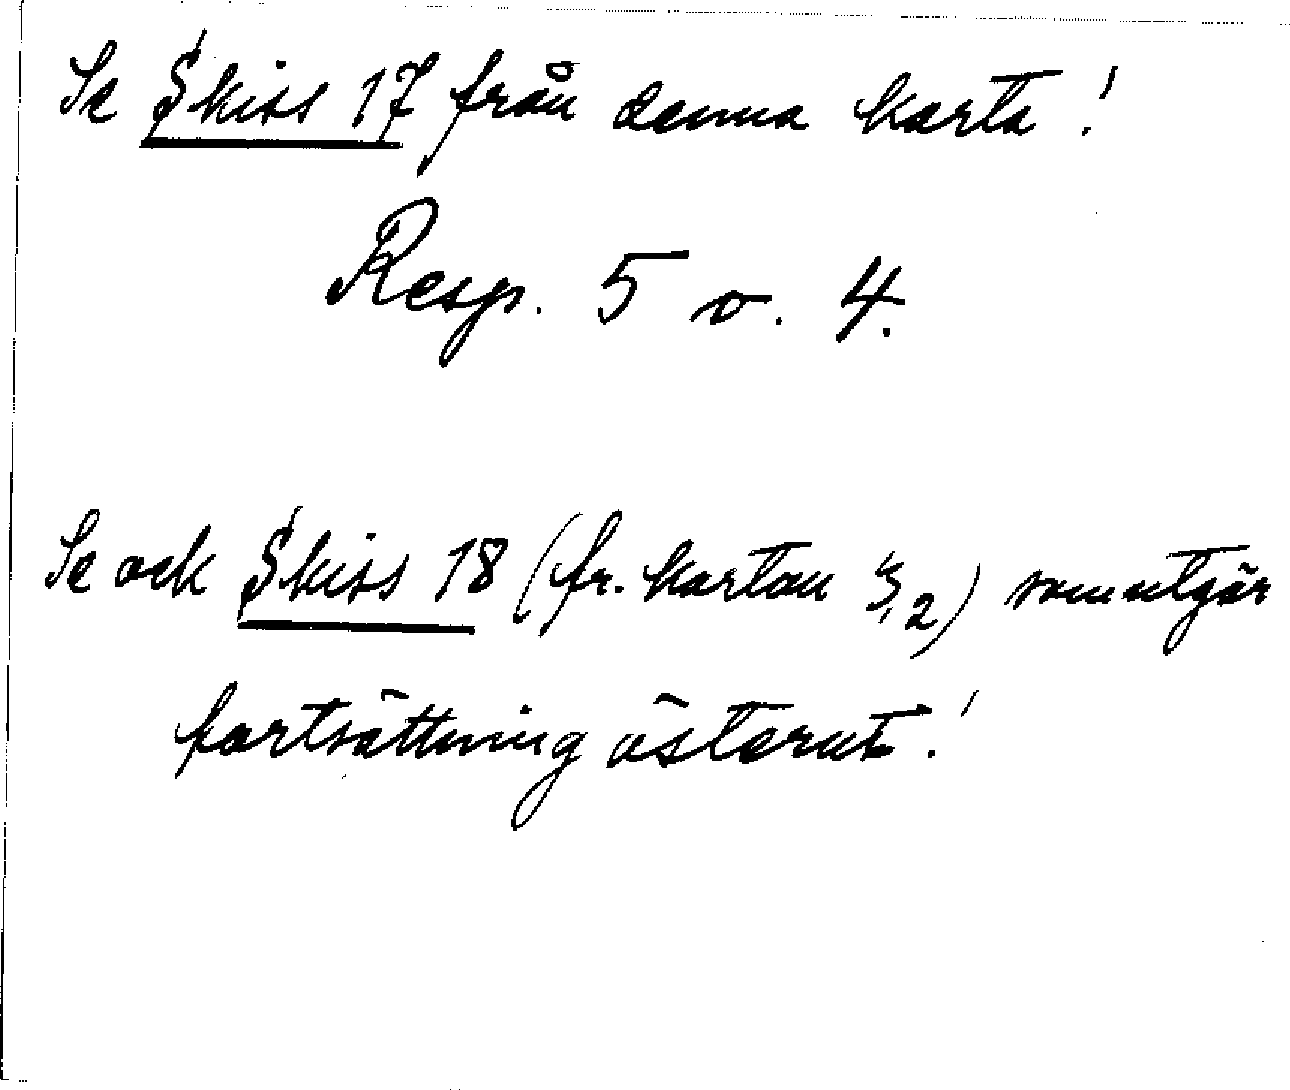 Se Skiss 17 från denna karta!
Resp. 5 v. 4.
Se ock Skiss 18 (fr. kartan 5,2) som utgör
fortsättning österut!